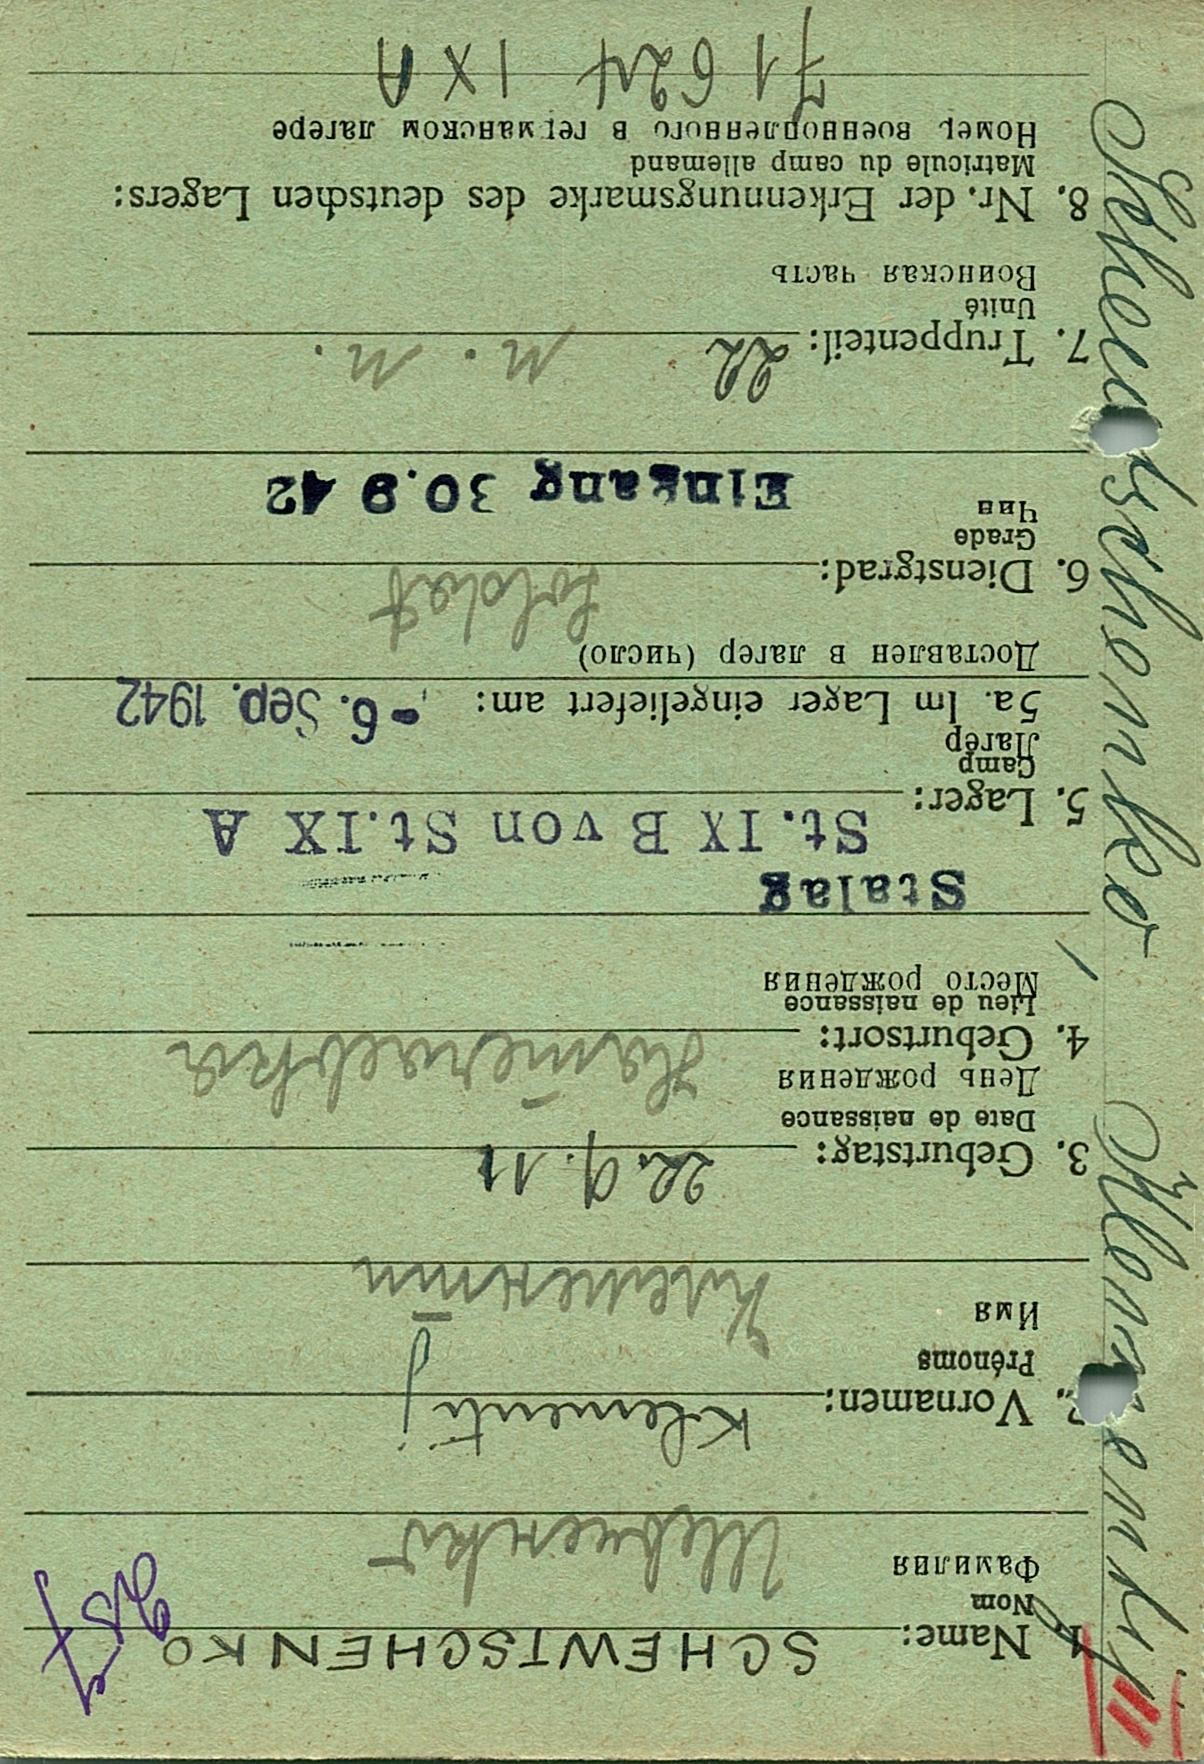 SCHEWTSCHENKO
1. Name:
Nom
Фамилия
Шевченко
2. Vornamen: Klementij
Prénoms
Имя
Климентий
3. Geburtstag: 22.9.11
Date de naissance
День рождения
4. Geburtsort:
Lieu de naissance
Место рождения
Stalag
St. IX B von St. IX A
5. Lager:
Camp
Лагер
5a. Im Lager eingeliefert am: -6. Sep. 1942
Доставлен в лагер (число)
Soldat
6. Dienstgrad:
Grade
Чин
Eingang 30.9 42
22
7. Truppenteil:
Unité
Воинская часть
8. Nr. der Erkennungsmarke des deutschen Lagers:
Matricule du camp allemand
Номер военнопленного в германском лагере
71624 IX A
Schewtschenko, Klementij